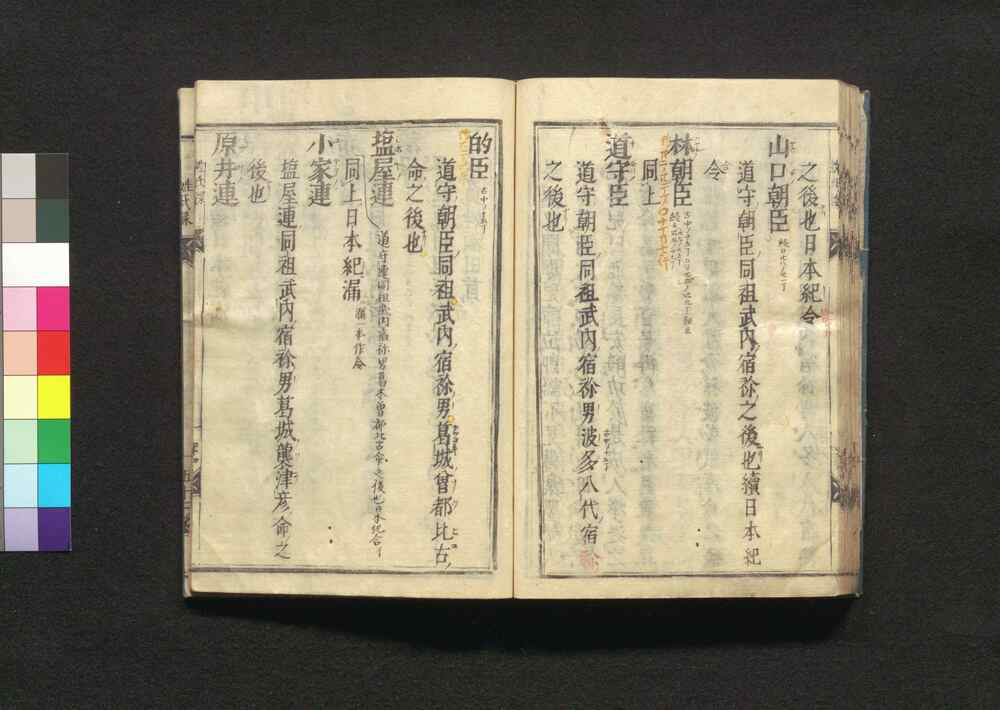 之後也日本紀合
山口朝臣
道守朝臣同祖武内宿祢之後也續日本紀
合
林朝臣
同上
道守臣
道守朝臣同祖武内宿祢男波多八代宿祢
之後也
的臣
道守朝臣同祖武内宿祢男葛城曾都比古
命之後也
塩屋連
道守連同祖武内宿祢男葛木曾都比古命之後也日本紀合
同上日本紀漏
小家連
塩屋連同祖武内宿祢男葛城襲津彦命之
後也
原井連